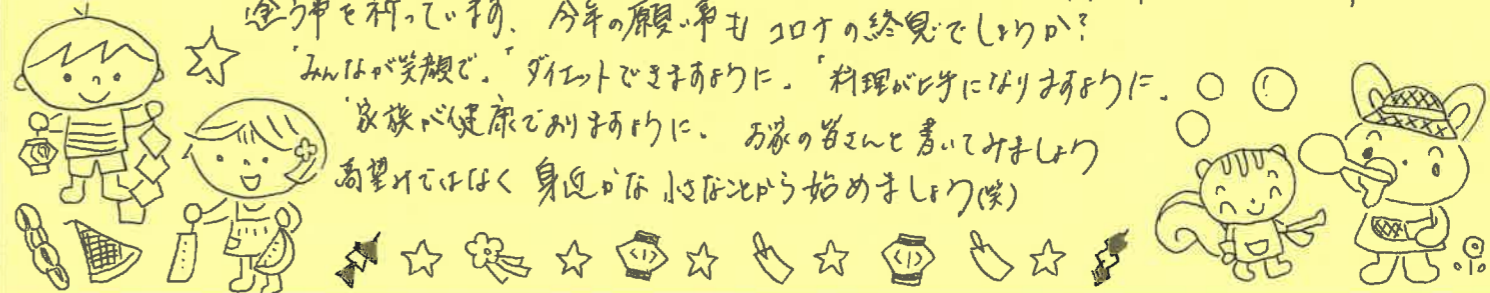 逢う事を祈っています。今年の願い事も コロナの終息でしょうか?
"みんなが笑顔で。" ダイエットできますように。"料理が上手になりますように。
"家族が健康でありますように。 お家の皆さんと書いてみましょう
高望みではなく 身近かな 小さなことから始めましょう(笑)